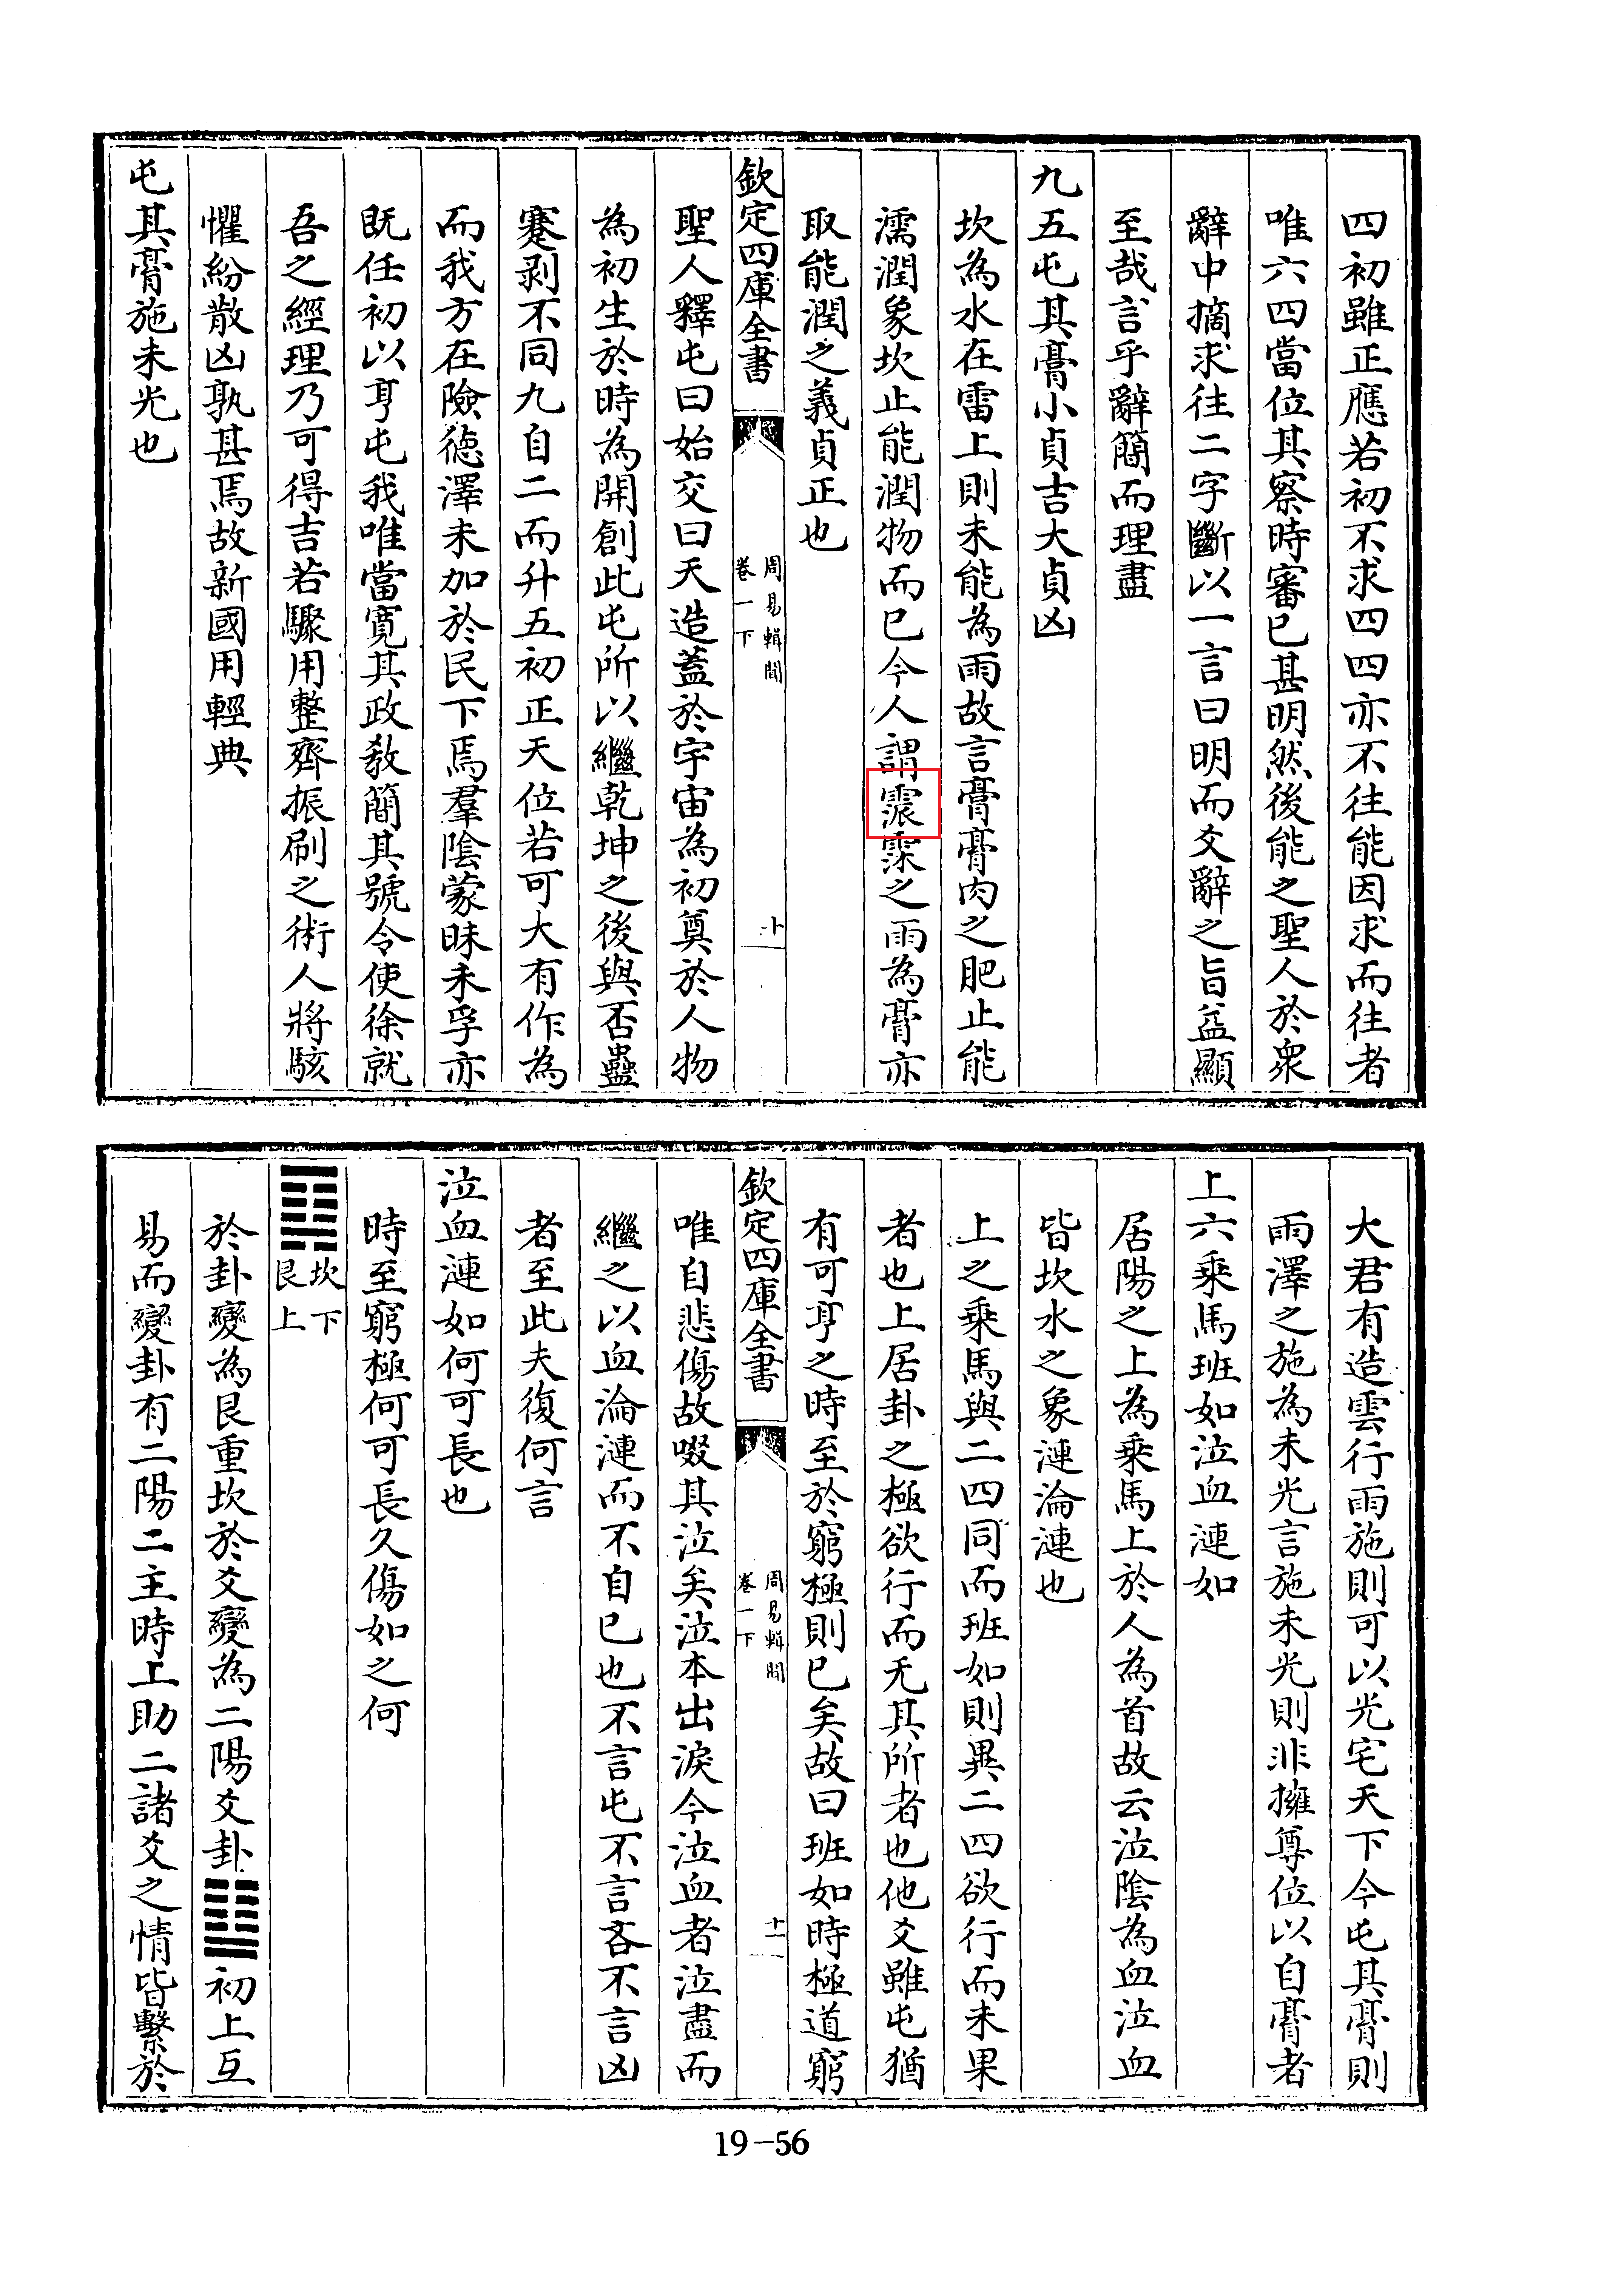 四初雖正應若初不求四四亦不往能因求而往者
唯六四當位其察時審已甚明然後能之聖人於衆
辭中摘求往二字斷以一言曰明而爻辭之旨益顯
至哉言乎辭簡而理盡
九五屯其膏小貞吉大貞凶
坎為水在雷上則未能為雨故言膏膏肉之肥止能
濡潤象坎止能潤物而已今人謂霂之雨為膏亦
取能潤之義貞正也
欽定四庫全書
周易輯聞
卷一下
十
聖人釋屯曰始交曰天造蓋於宇宙為初奠於人物
為初生於時為開創此屯所以繼乾坤之後與否蠱
蹇剥不同九自二而升五初正天位若可大有作為
而我方在險德澤未加於民下焉羣陰蒙昧未孚亦
既任初以亨屯我唯當寛其政教簡其號令使徐就
吾之經理乃可得吉若驟用整齊振刷之術人將駭
懼紛散凶孰甚焉故新國用輕典
屯其膏施未光也
大君有造雲行雨施則可以光宅天下今屯其膏則
雨澤之施為未光言施未光則非擁尊位以自膏者
上六乘馬班如泣血漣如
居陽之上為乘馬上於人為首故云泣陰為血泣血
皆坎水之象漣淪漣也
上之乘馬與二四同而班如則異二四欲行而未果
者也上居卦之極欲行而无其所者也他爻雖屯猶
有可亨之時至於窮極則已矣故曰班如時極道窮
欽定四庫全書
周易輯聞
卷一下
十一
唯自悲傷故啜其泣矣泣本出淚今泣血者泣盡而
繼之以血淪漣而不自已也不言屯不言吝不言凶
者至此夫復何言
泣血漣如何可長也
時至窮極何可長久傷如之何
䷃坎下艮上
於卦變為艮重坎於爻變為二陽爻卦䷒初上互
易而變卦有二陽二主時上助二諸爻之情皆繫於
19-56